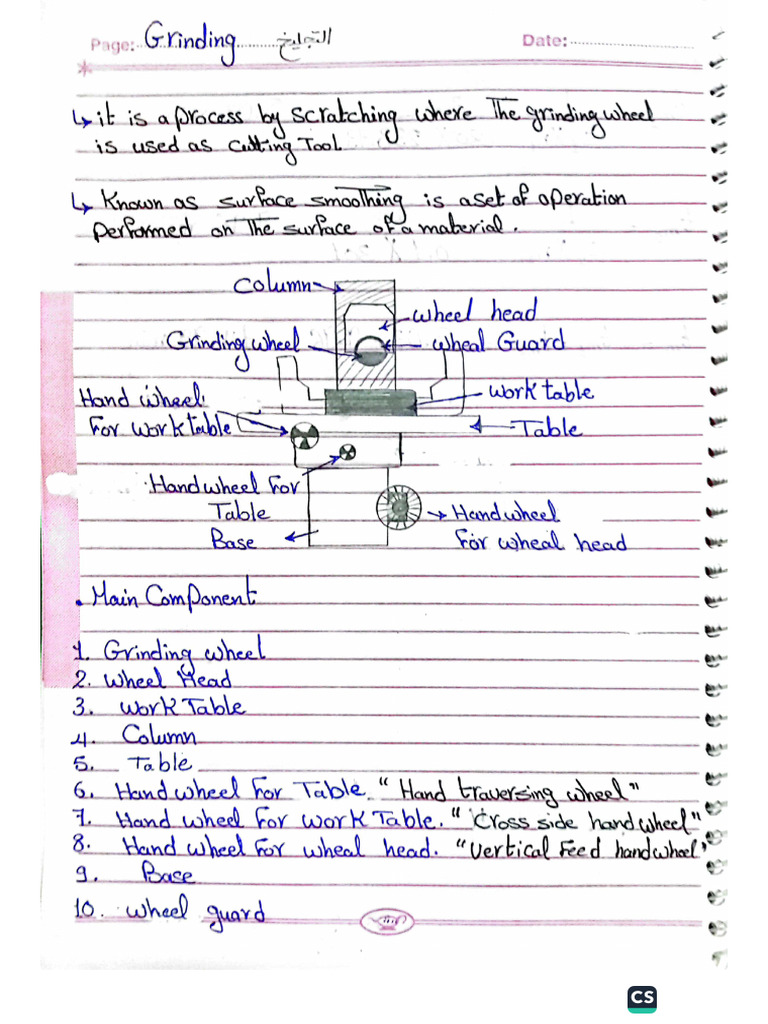 Page: Grinding التجليخ Date:
↳ it is a process by scratching where The grinding wheel
is used as cutting Tool
↳ Known as surface smoothing is a set of operation
performed on The surface of a material.
Column
wheel head
Grinding wheel
wheal Guard
Hand wheel
For work table
work table
Table
Hand wheel For
Table
Base
Hand wheel
For wheal head
• Main Component
1. Grinding wheel
2. Wheel Head
3. Work Table
4. Column
5. Table
6. Hand wheel For Table. "Hand traversing wheel"
7. Hand wheel For work Table. "Cross side handwheel"
8. Hand wheel For wheal head. "Vertical Feed handwheel"
9. Base
10. wheel guard
CS